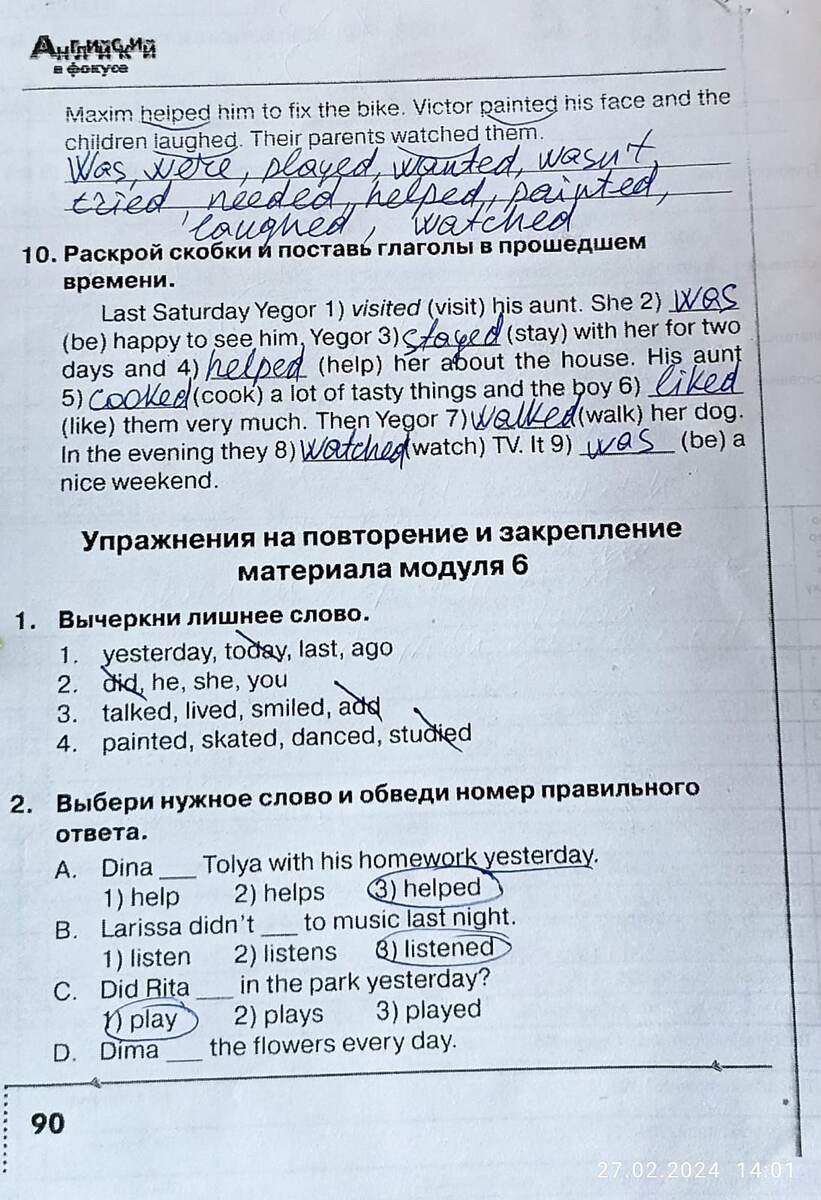 Английский
в фокусе
Maxim helped him to fix the bike. Victor painted his face and the
children laughed. Their parents watched them.
Was, were, played, wanted, wasn't,
tried, needed, helped, painted,
laughed, watched
10. Раскрой скобки и поставь глаголы в прошедшем
времени.
Last Saturday Yegor 1) visited (visit) his aunt. She 2) was
(be) happy to see him. Yegor 3) stayed (stay) with her for two
days and 4) helped (help) her about the house. His aunt
5) cooked (cook) a lot of tasty things and the boy 6) liked
(like) them very much. Then Yegor 7) walked (walk) her dog.
In the evening they 8) watched (watch) TV. It 9) was (be) a
nice weekend.
Упражнения на повторение и закрепление
материала модуля 6
1. Вычеркни лишнее слово.
1. yesterday, today, last, ago
2. did, he, she, you
3. talked, lived, smiled, add
4. painted, skated, danced, studied
2. Выбери нужное слово и обведи номер правильного
ответа.
A. Dina ___ Tolya with his homework yesterday.
1) help 2) helps 3) helped
B. Larissa didn't ___ to music last night.
1) listen 2) listens 3) listened
C. Did Rita ___ in the park yesterday?
1) play 2) plays 3) played
D. Dima ___ the flowers every day.
90
27.02.2024 14:01